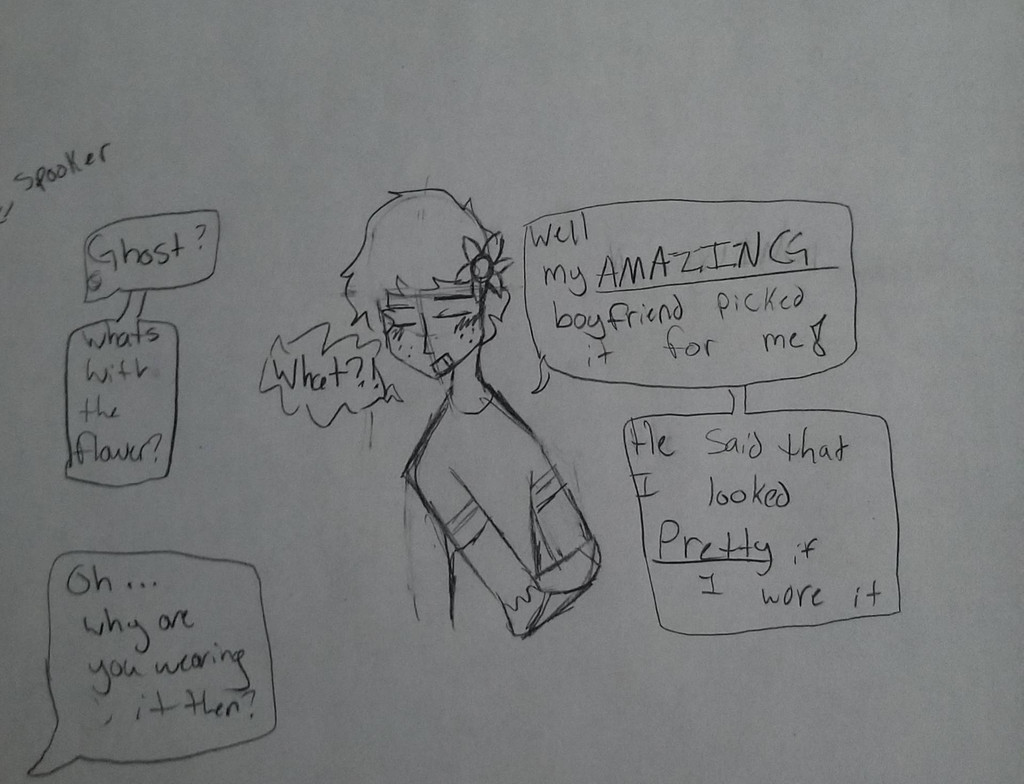 Spooker
Ghost?
whats
with
the
flower?
What?!
Well
my AMAZING
boyfriend picked
it for me
He said that
I looked
Pretty if
I wore it
Oh...
why are
you wearing
it then?